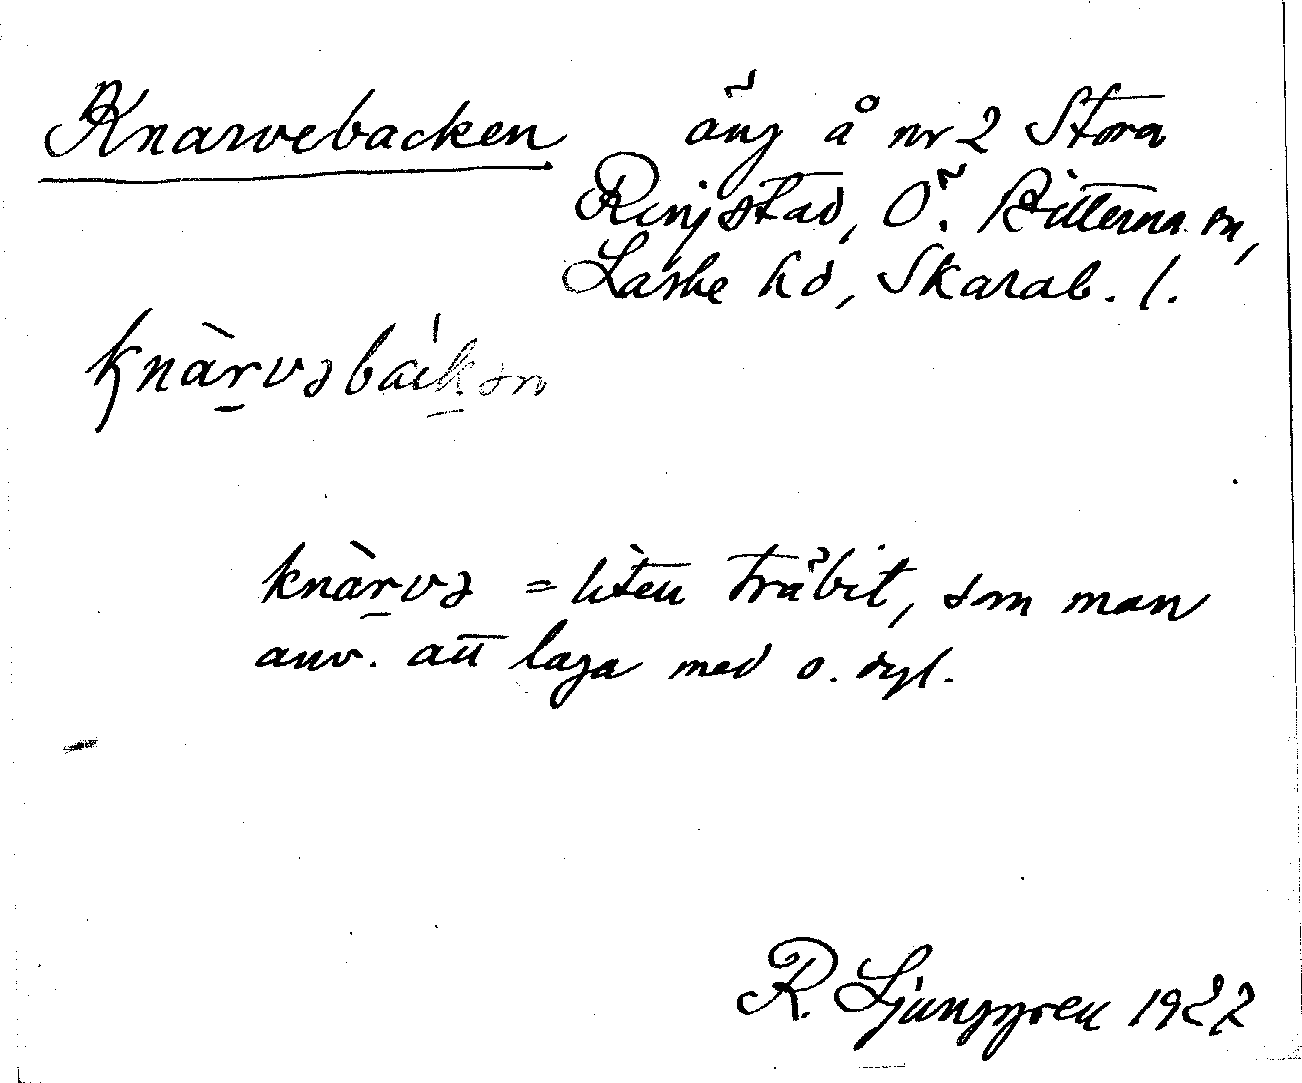 Knarvebacken äng å nr 2 Stora
Ringstad, Ö. Bitterna sn,
Laske hd, Skarab. l.
knàrvəbákən
knàrvə = liten träbit, som man
anv. att laga med o. dyl.
R. Ljunggren 1927